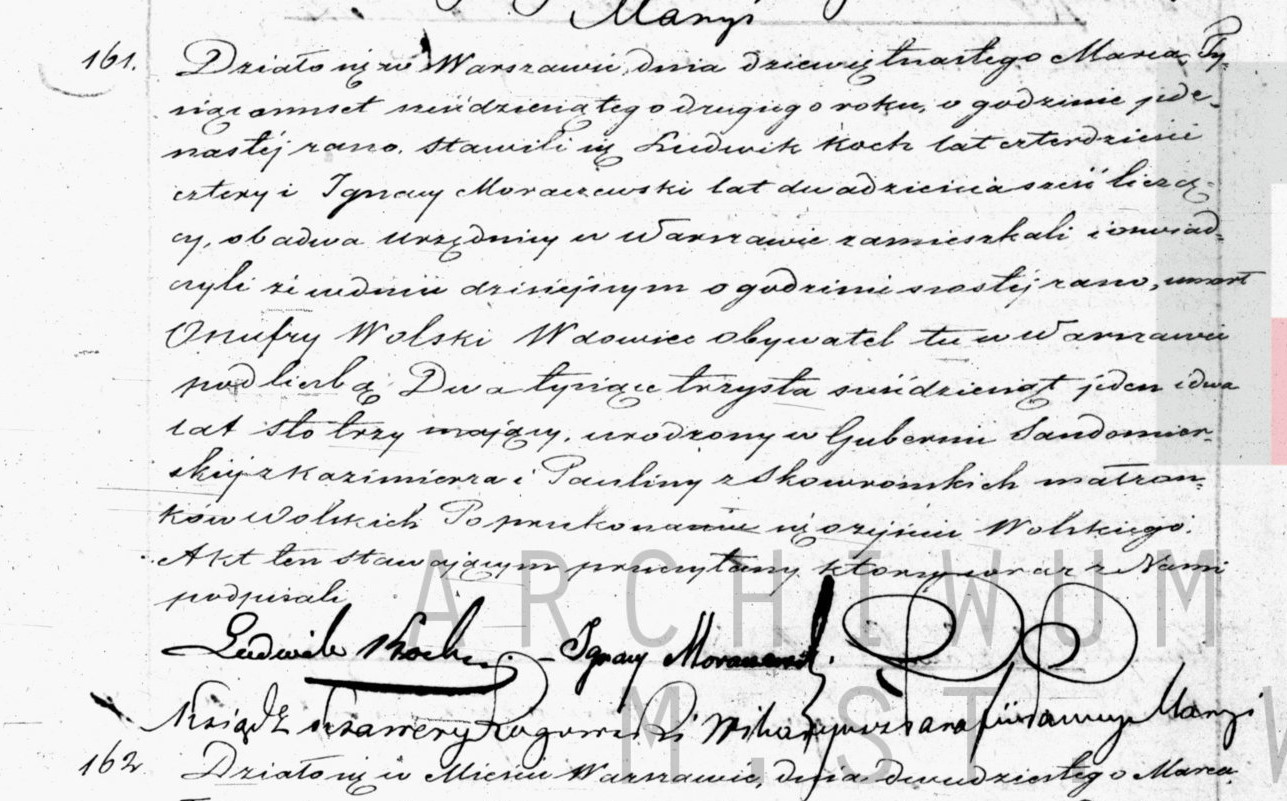 Maryi
161. Działo się w Warszawie, dnia dziewiętnastego Marca, Ty-
siąc ośmset sześdziesiątego drugiego roku, o godzinie jede-
nastéj rano. Stawili się Ludwik Koch lat czterdzieści
cztery i Ignacy Moraczewski lat dwadzieścia sześć liczą-
cy, obadwa urzędnicy w Warszawie zamieszkali i oświad-
czyli że w dniu dzisiejszym o godzinie szóstéj rano, umarł
Onufry Wolski Wdowiec obywatel tu w Warszawie
pod liczbą Dwa tysiące trzysta sześdziesiąt jeden i dwa
lat sto trzy mający, urodzony w Gubernii Sandomier-
skiéj z Kazimierza i Pauliny z Skowrońskich małżon-
ków Wolskich Po przekonaniu się o zejściu Wolskiego.
Akt ten stawającym przeczytany którzy wraz z Nami
podpisali
Ludwik Koch. – Ignacy Moraczewski.
Ksiądz Ksawery Rogowski Wikaryusz Parafii Panny Maryi
162 Działo się w Mieście Warszawie, dnia dwudziestego Marca
ARCHIWUM
M.ST. W